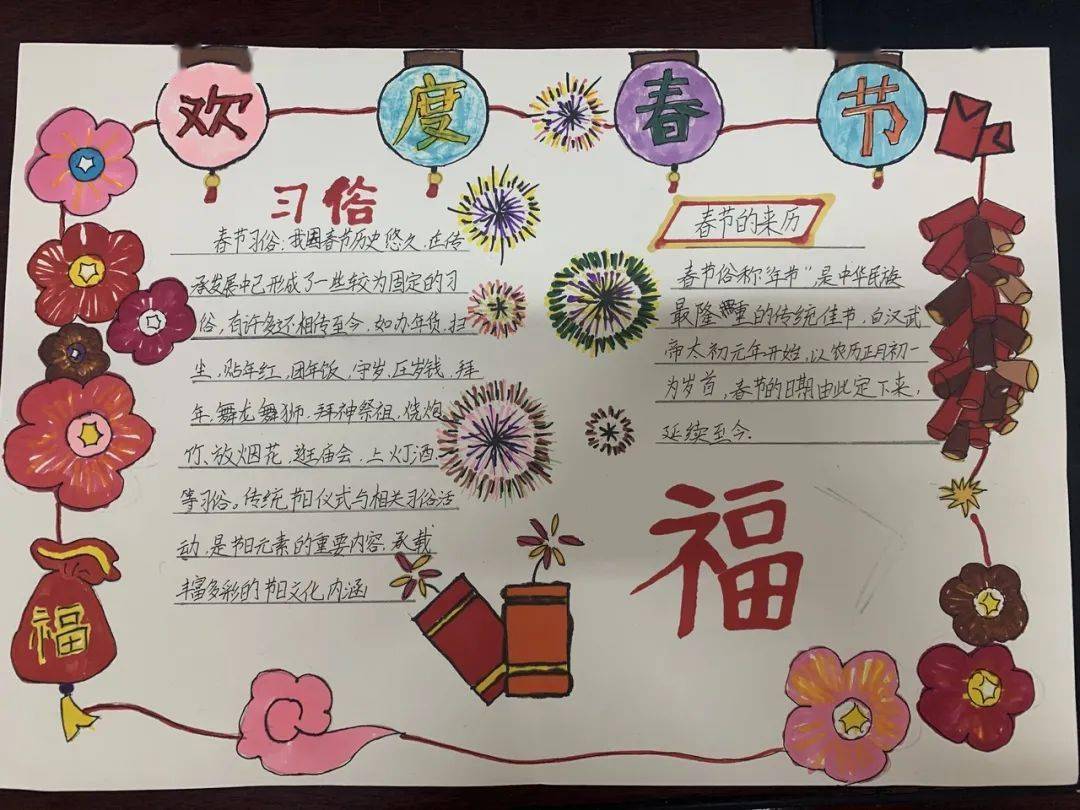 欢度春节
习俗
春节习俗,我国春节历史悠久,在传
承发展中已形成了一些较为固定的习
俗,有许多还相传至今,如办年货,扫
尘,贴年红,团年饭,守岁,压岁钱,拜
年,舞龙舞狮,拜神祭祖,烧炮
竹、放烟花,逛庙会,上灯酒
等习俗。传统节日仪式与相关习俗活
动,是节日元素的重要内容,承载
丰富多彩的节日文化内涵
春节的来历
春节俗称"年节",是中华民族
最隆重的传统佳节,自汉武
帝太初元年开始,以农历正月初一
为岁首,春节的日期由此定下来,
延续至今.
福
福